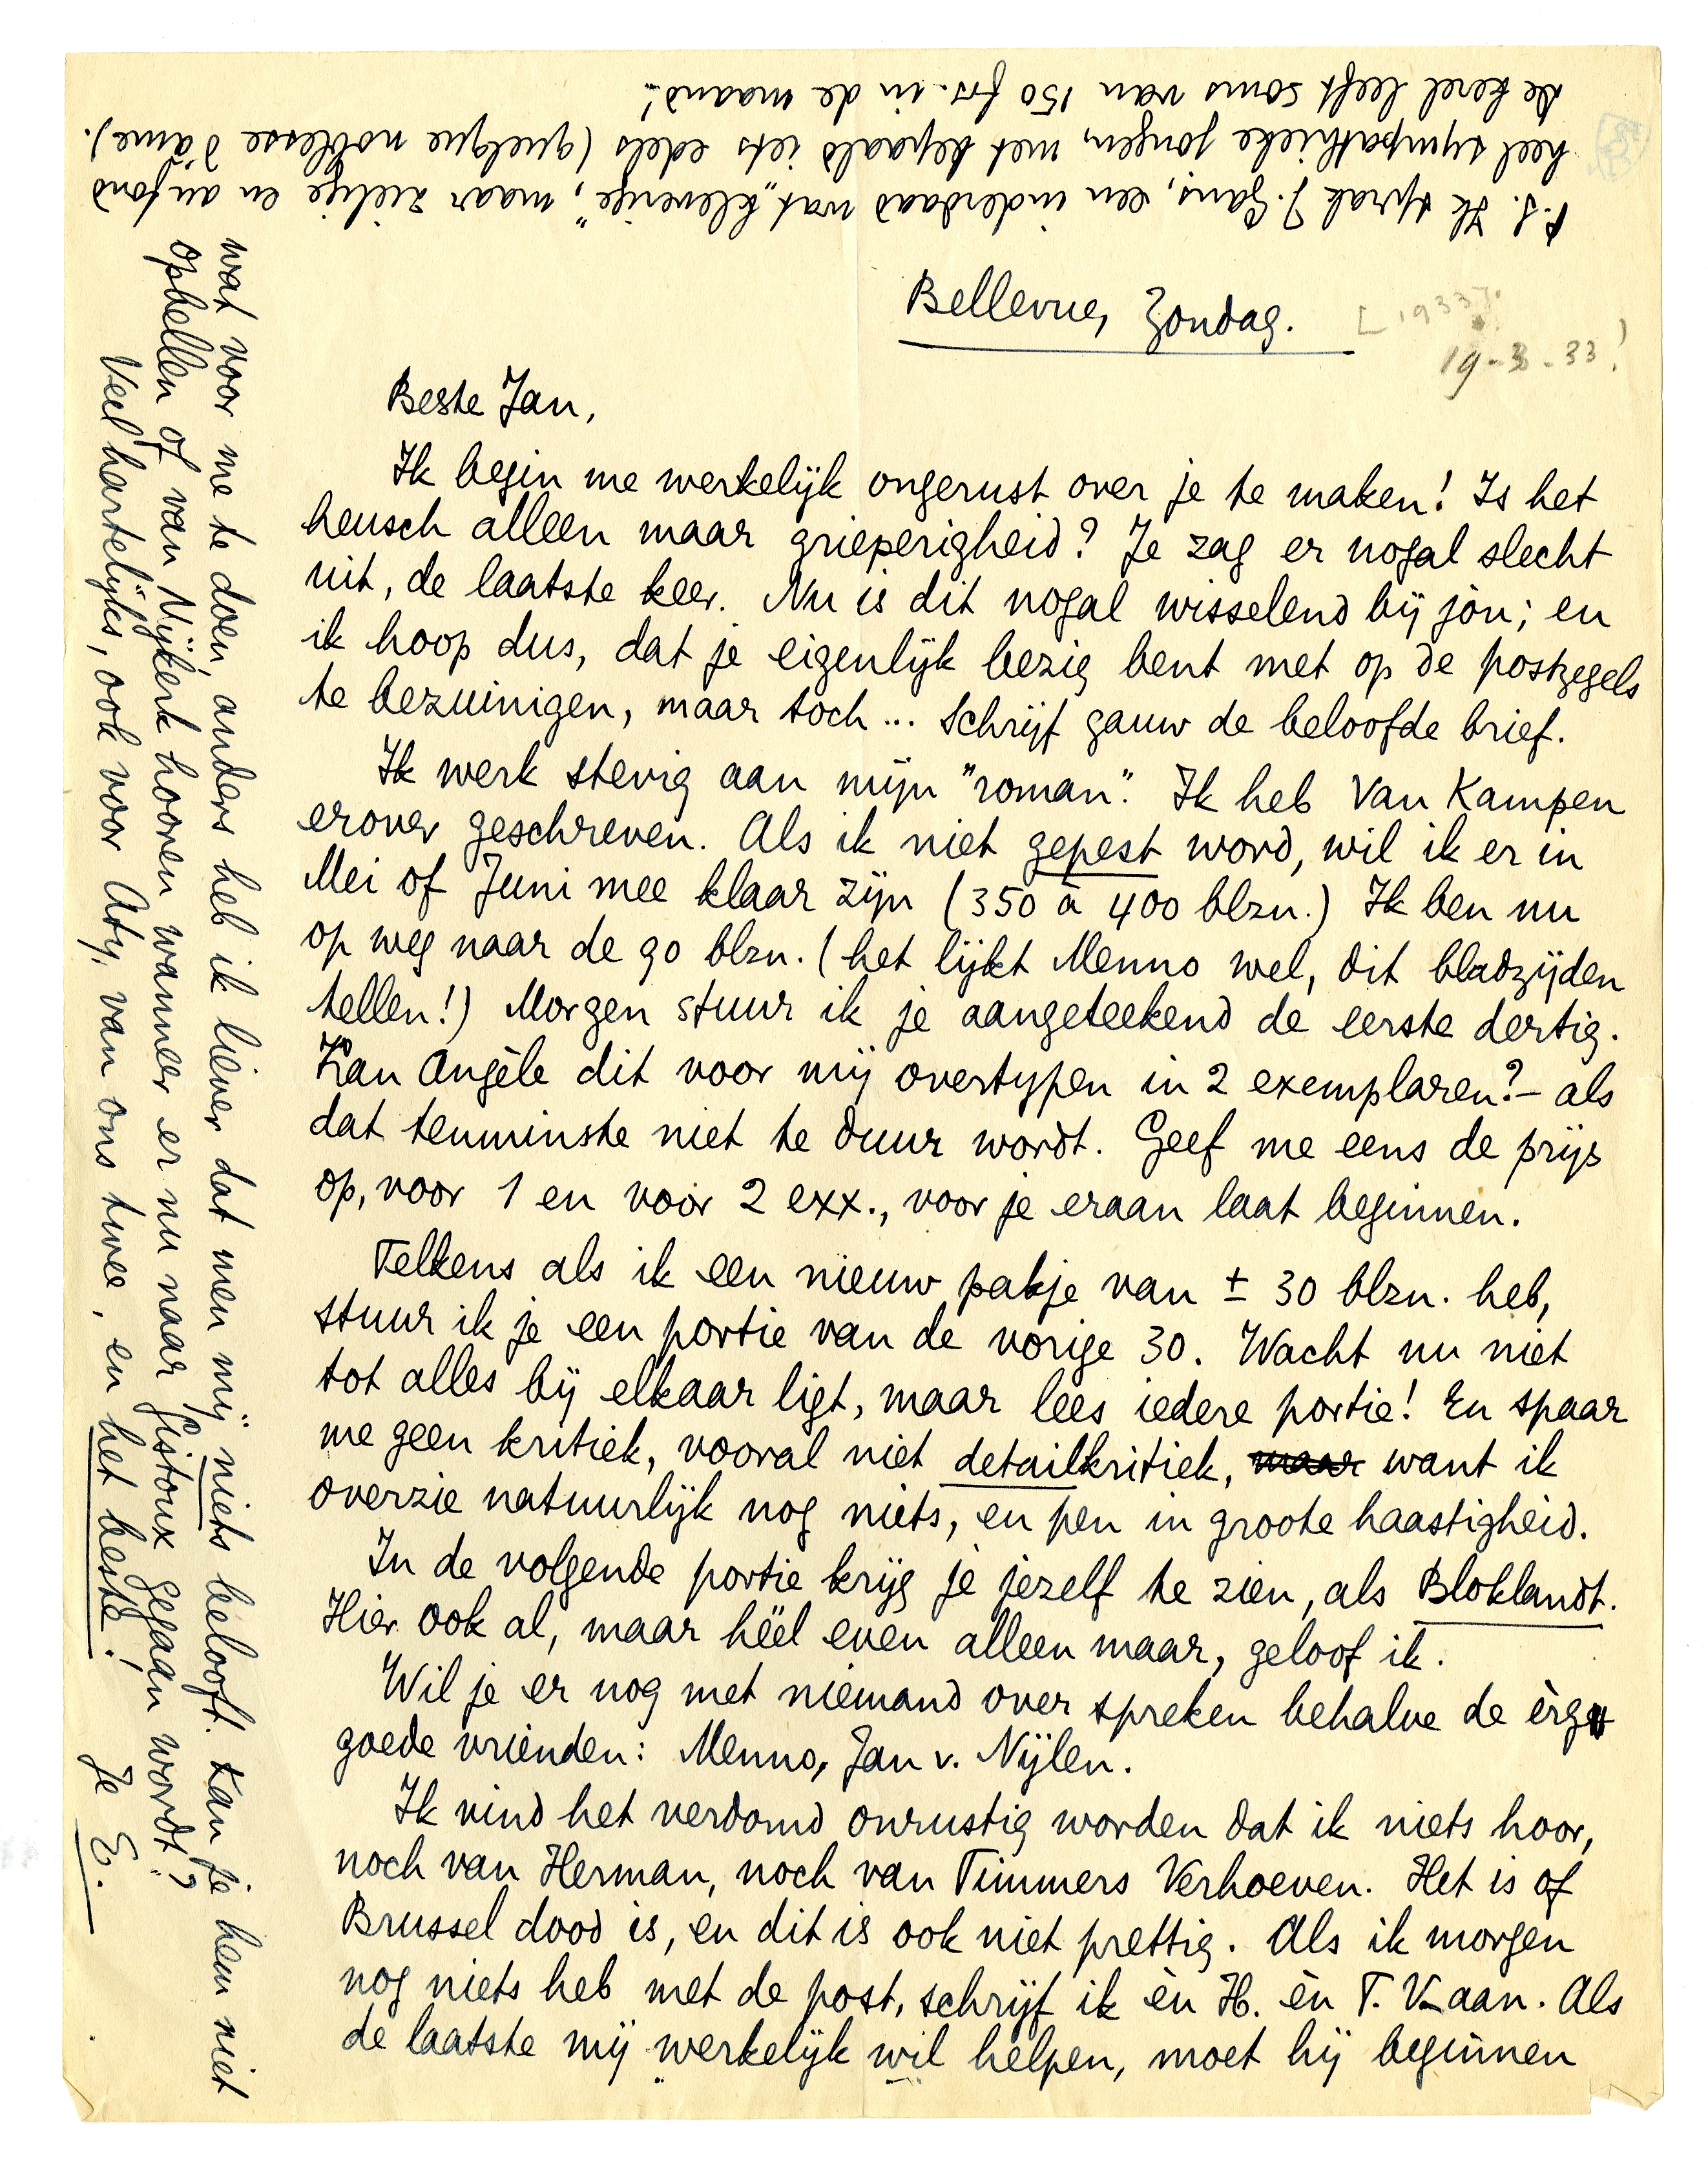 Bellevue, Zondag.
[1933].
19-3-33!
Beste Jan,
Ik begin me werkelijk ongerust over je te maken! Is het
heusch alleen maar grieperigheid? Je zag er nogal slecht
uit, de laatste keer. Nu is dit nogal wisselend bij jou; en
ik hoop dus, dat je eigenlijk bezig bent met op de postzegels
te bezuinigen, maar toch... Schrijf gauw de beloofde brief.
Ik werk stevig aan mijn "roman". Ik heb Van Kampen
erover geschreven. Als ik niet gepest word, wil ik er in
Mei of Juni mee klaar zijn (350 à 400 blzn.) Ik ben nu
op weg naar de 90 blzn. (het lijkt Menno wel, dit bladzijden
tellen!) Morgen stuur ik je aangeteekend de eerste dertig.
Kan Angèle dit voor mij overtypen in 2 exemplaren? – als
dat tenminste niet te duur wordt. Geef me eens de prijs
op, voor 1 en voor 2 exx., voor je eraan laat beginnen.
Telkens als ik een nieuw pakje van ± 30 blzn. heb,
stuur ik je een portie van de vorige 30. Wacht nu niet
tot alles bij elkaar ligt, maar lees iedere portie! En spaar
me geen kritiek, vooral niet detailkritiek, maar want ik
overzie natuurlijk nog niets, en pen in groote haastigheid.
In de volgende portie krijg je jezelf te zien, als Bloklandt.
Hier ook al, maar héél even alleen maar, geloof ik.
Wil je er nog met niemand over spreken behalve de èrg
goede vrienden: Menno, Jan v. Nijlen.
Ik vind het verdomd onrustig worden dat ik niets hoor,
noch van Herman, noch van Timmers Verhoeven. Het is of
Brussel dood is, en dit is ook niet prettig. Als ik morgen
nog niets heb met de post, schrijf ik èn H. èn T. V. aan. Als
de laatste mij werkelijk wil helpen, moet hij beginnen
wat voor me te doen, anders heb ik liever dat men mij niets belooft. Kan je hem niet
opbellen of van Nijkerk hooren wanneer er nu naar Gistoux gegaan wordt?
Veel hartelijks, ook voor Aty, van ons twee, en het beste!
Je E.
P.S. Ik sprak J. Gans, een inderdaad wat „kleverige", maar zielige en au fond
heel sympathieke jongen, met bepaald iets edels (quelque noblesse d'âme).
De kerel leeft soms van 150 frs. in de maand!